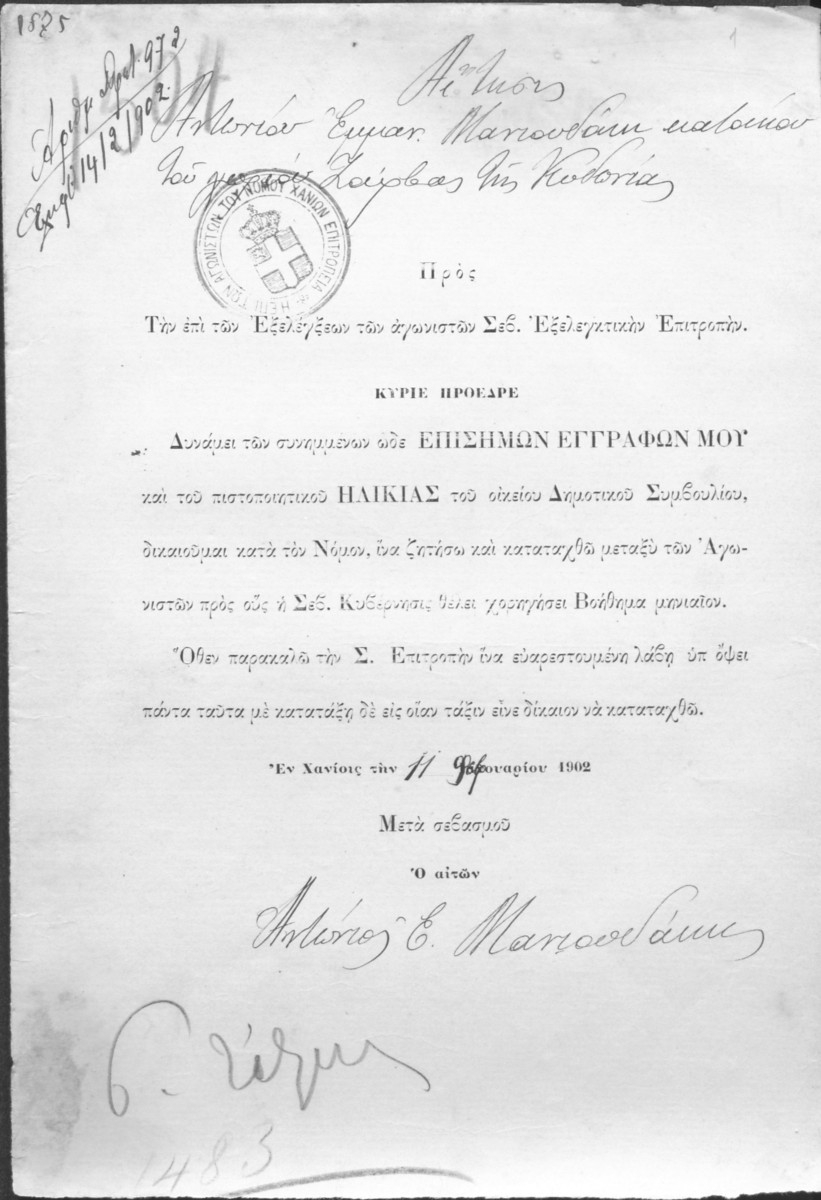 1875
Ἀριθμ. Πρωτ. 972
14/2/1902
Αἴτησις
Ἀντωνίου Ἐμμαν. Μανιουδάκη κατοίκου
τοῦ χωρίου Ζούρβας τῆς Κυδωνίας
Η ΕΠΙ ΤΩΝ ΑΓΩΝΙΣΤΩΝ ΤΟΥ ΝΟΜΟΥ ΧΑΝΙΩΝ ΕΠΙΤΡΟΠΕΙΑ
Πρὸς
Τὴν ἐπὶ τῶν Ἐξελέγξεων τῶν ἀγωνιστῶν Σεβ. Ἐξελεγκτικὴν Ἐπιτροπήν.
ΚΥΡΙΕ ΠΡΟΕΔΡΕ
Δυνάμει τῶν συνημμένων ὧδε ΕΠΙΣΗΜΩΝ ΕΓΓΡΑΦΩΝ ΜΟΥ
καὶ τοῦ πιστοποιητικοῦ ΗΛΙΚΙΑΣ τοῦ οἰκείου Δημοτικοῦ Συμβουλίου,
δικαιοῦμαι κατὰ τὸν Νόμον, ἵνα ζητήσω καὶ καταταχθῶ μεταξὺ τῶν Ἀγω-
νιστῶν πρὸς οὓς ἡ Σεβ. Κυβέρνησις θέλει χορηγήσει Βοήθημα μηνιαῖον.
Ὅθεν παρακαλῶ τὴν Σ. Ἐπιτροπὴν ἵνα εὐαρεστουμένη λάβῃ ὑπ ὄψει
πάντα ταῦτα μὲ κατατάξῃ δὲ εἰς οἵαν τάξιν εἶνε δίκαιον νὰ καταταχθῶ.
Ἐν Χανίοις τὴν 11 Φεβρουαρίου 1902
Μετὰ σεβασμοῦ
Ὁ αἰτῶν
Ἀντώνιος Ε. Μανιουδάκης
6. τάξεως
1483